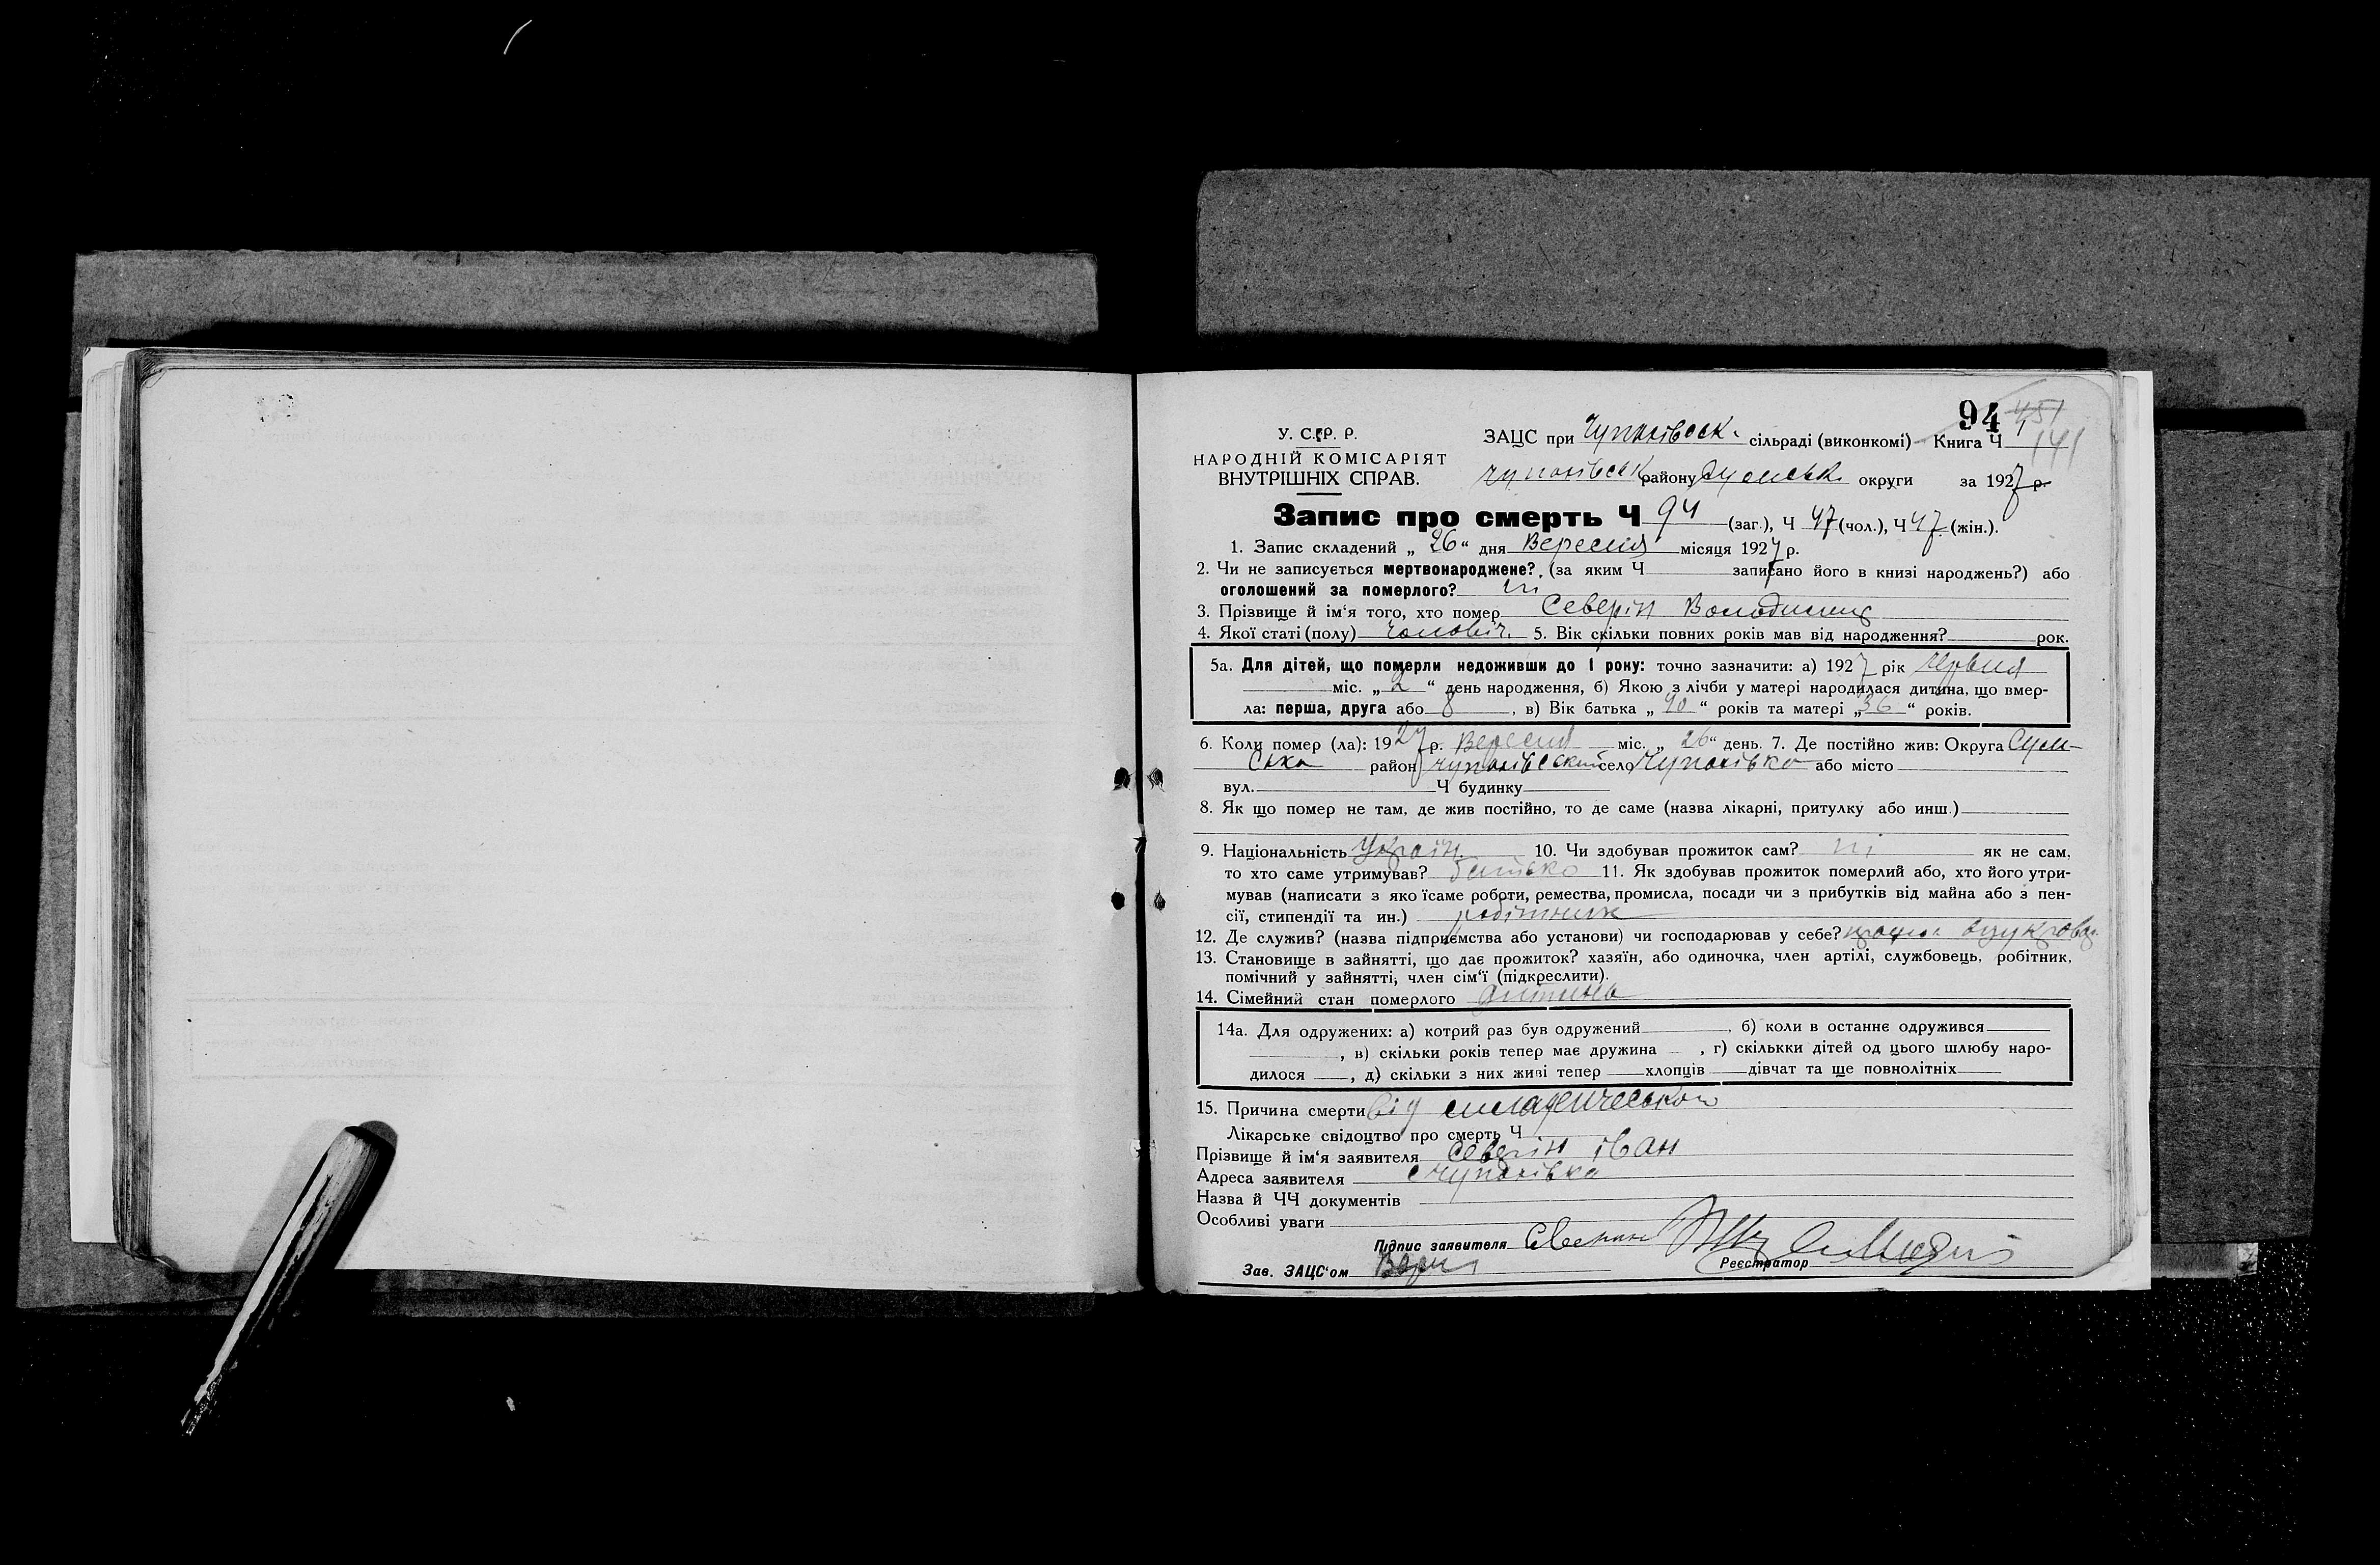 94 451
141
У. С. Р. Р.
НАРОДНІЙ КОМІСАРІЯТ
ВНУТРІШНІХ СПРАВ.
ЗАЦС при Чупахівськ. сільраді (виконкомі) Книга Ч 1
Чупахівськ району Сумськ. округи за 1927 р.
Запис про смерть Ч 94 (заг.), Ч 47 (чол.), Ч 47 (жін.).
1. Запис складений „ 26 “ дня Вересня місяця 1927 р.
2. Чи не записується мертвонароджене? (за яким Ч записано його в книзі народжень?) або
оголошений за померлого? ні
3. Прізвище й ім‘я того, хто помер Северін Володимир
4. Якої статі (полу) чоловіч. 5. Вік скільки повних років мав від народження? рок.
5а. Для дітей, що померли недоживши до 1 року: точно зазначити: а) 1927 рік Червня
міс. „ 2 “ день народження, б) Якою з лічби у матері народилася дитина, що вмер-
ла: перша, друга або 8, в) Вік батька „ 40 “ років та матері „ 36 “ років.
6. Коли помер (ла): 1927 р. Вересня міс. „ 26 “ день. 7. Де постійно жив: Округа Сум-
ська район Чупахівський село Чупахівка або місто
вул. Ч будинку
8. Як що помер не там, де жив постійно, то де саме (назва лікарні, притулку або инш.)
9. Національність Україн. 10. Чи здобував прожиток сам? ні як не сам,
то хто саме утримував? батько 11. Як здобував прожиток померлий або, хто його утри-
мував (написати з яко їсаме роботи, ремества, промисла, посади чи з прибутків від майна або з пен-
сії, стипендії та ин.) робітник
12. Де служив? (назва підприємства або установи) чи господарював у себе?
13. Становище в зайнятті, що дає прожиток? хазяїн, або одиночка, член артілі, службовець, робітник,
помічний у зайнятті; член сім‘ї (підкреслити).
14. Сімейний стан померлого дитина
14а. Для одружених: а) котрий раз був одружений , б) коли в останнє одружився
, в) скільки років тепер має дружина , г) скількки дітей од цього шлюбу наро-
дилося , д) скільки з них живі тепер хлопців дівчат та ще повнолітніх
15. Причина смерти від
Лікарське свідоцтво про смерть Ч
Прізвище й ім‘я заявителя Северін Іван
Адреса заявителя с Чупахівка
Назва й ЧЧ документів
Особливі уваги
Підпис заявителя
Зав. ЗАЦС‘ом Реєстратор